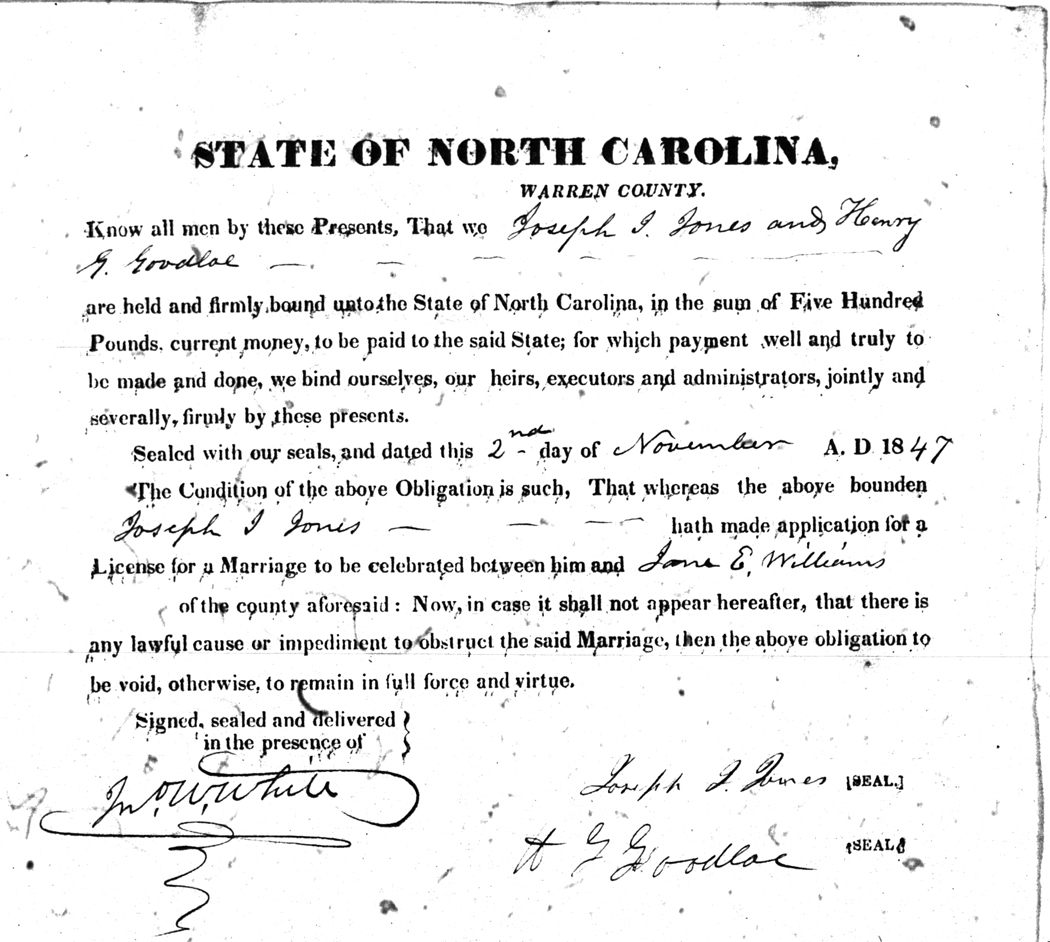 STATE OF NORTH CAROLINA,
WARREN COUNTY.
Know all men by these Presents, That we Joseph J. Jones and Henry
G. Goodloe — — — — —
are held and firmly bound unto the State of North Carolina, in the sum of Five Hundred
Pounds, current money, to be paid to the said State; for which payment well and truly to
be made and done, we bind ourselves, our heirs, executors and administrators, jointly and
severally, firmly by these presents.
Sealed with our seals, and dated this 2nd day of November A. D 1847
The Condition of the above Obligation is such, That whereas the above bounden
Joseph J Jones — — — — hath made application for a
License for a Marriage to be celebrated between him and Jane E. Williams
of the county aforesaid: Now, in case it shall not appear hereafter, that there is
any lawful cause or impediment to obstruct the said Marriage, then the above obligation to
be void, otherwise, to remain in full force and virtue.
Signed, sealed and delivered }
in the presence of
Jno. W. White
Joseph J. Jones [SEAL.]
H G Goodloe [SEAL]